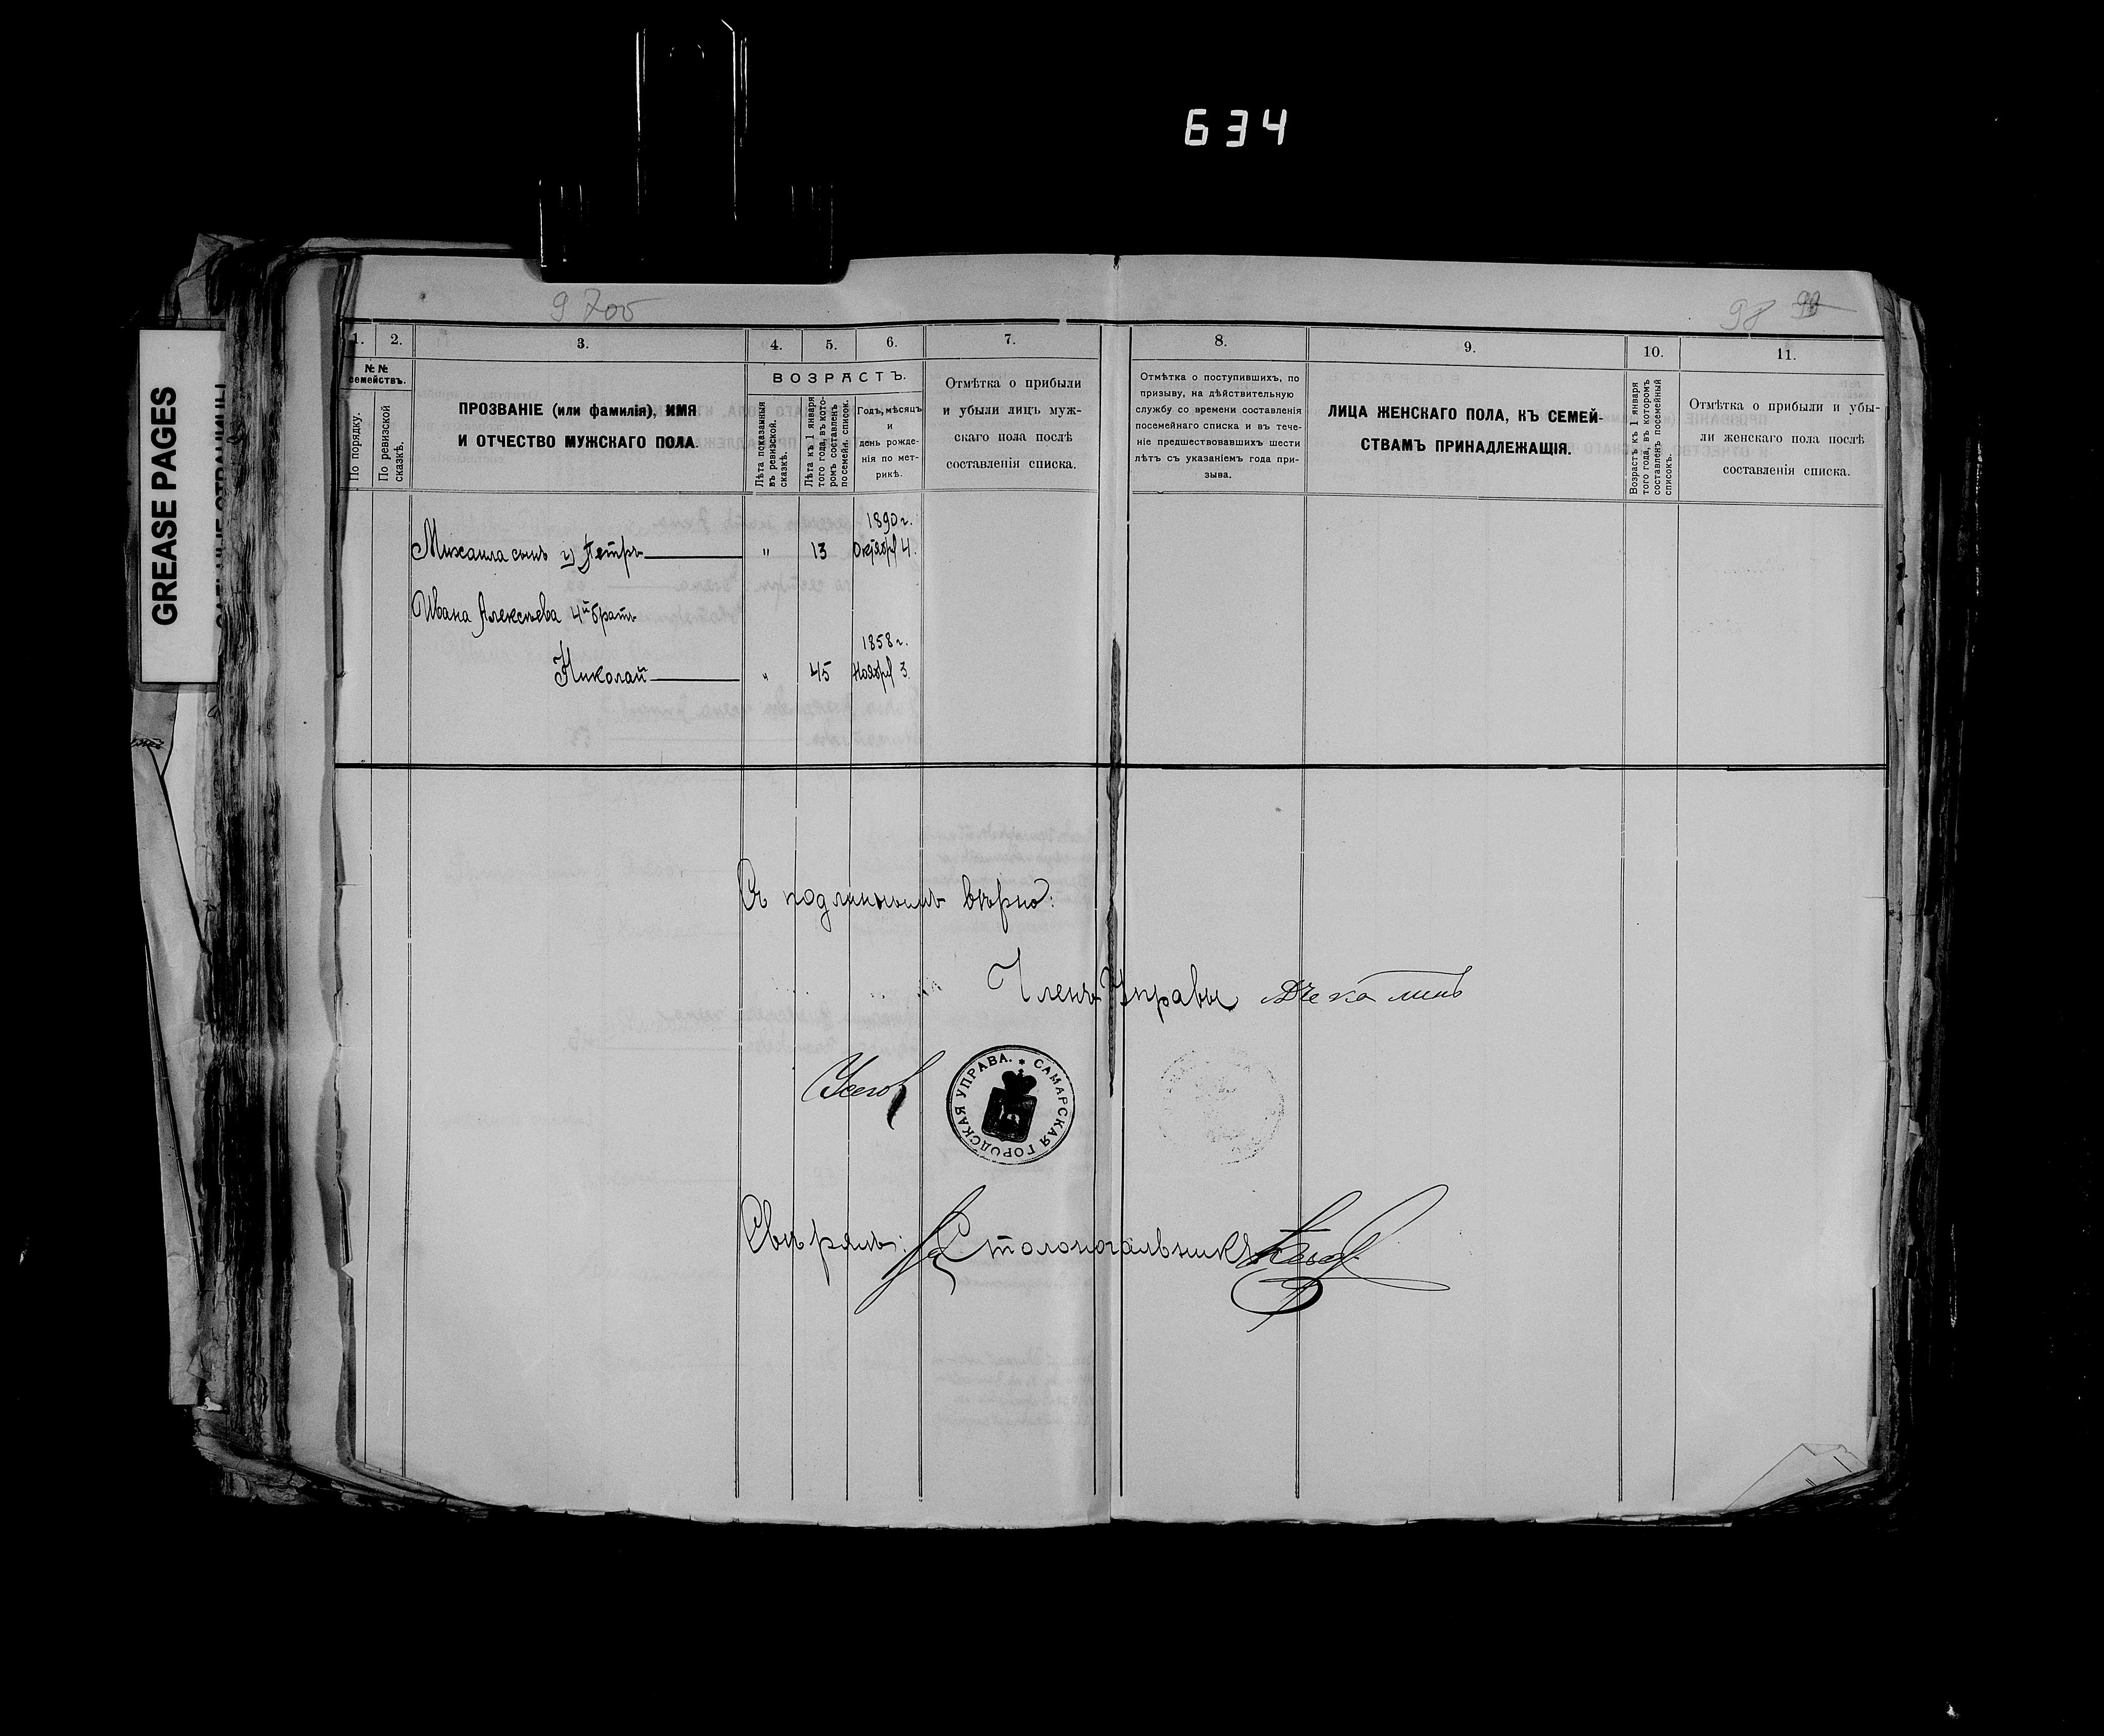 634
GREASE PAGES
9700
98 90
1.
2.
3.
4.
5.
6.
7.
8.
9.
10.
11.
№№ семействъ.
По порядку.
По ревизской
сказкѣ.
ПРОЗВАНІЕ (или фамилія), ИМЯ
И ОТЧЕСТВО МУЖСКАГО ПОЛА.
ВОЗРАСТЪ.
Лѣта показанныя
въ ревизской.
сказкѣ.
Лѣта къ 1 января
того года, въ кото-
ромъ составленъ
посемейн. список.
Годъ, мѣсяцъ
и
день рожде-
нія по мет-
рикѣ.
Отмѣтка о прибыли
и убыли лицъ муж-
скаго пола послѣ
составленія списка.
Отмѣтка о поступившихъ, по
призыву, на дѣйствительную
службу со времени составленія
посемейнаго списка и въ тече-
ніе предшествовавшихъ шести
лѣтъ съ указаніемъ года при-
зыва.
ЛИЦА ЖЕНСКАГО ПОЛА, КЪ СЕМЕЙ-
СТВАМЪ ПРИНАДЛЕЖАЩІЯ.
Возрастъ къ 1 января
того года, въ которомъ
составленъ посемейный
списокъ.
Отмѣтка о прибыли и убы-
ли женскаго пола послѣ
составленія списка.
1890 г.
Михаила сынъ 2) Петръ " 13 Октября 4.
Ивана Алексѣева 4й братъ
1858 г.
Николай " 45 Ноября 3
Съ подлиннымъ вѣрно:
Членъ Управы
САМАРСКАЯ ГОРОДСКАЯ УПРАВА.
Свѣрялъ: Столоначальникъ